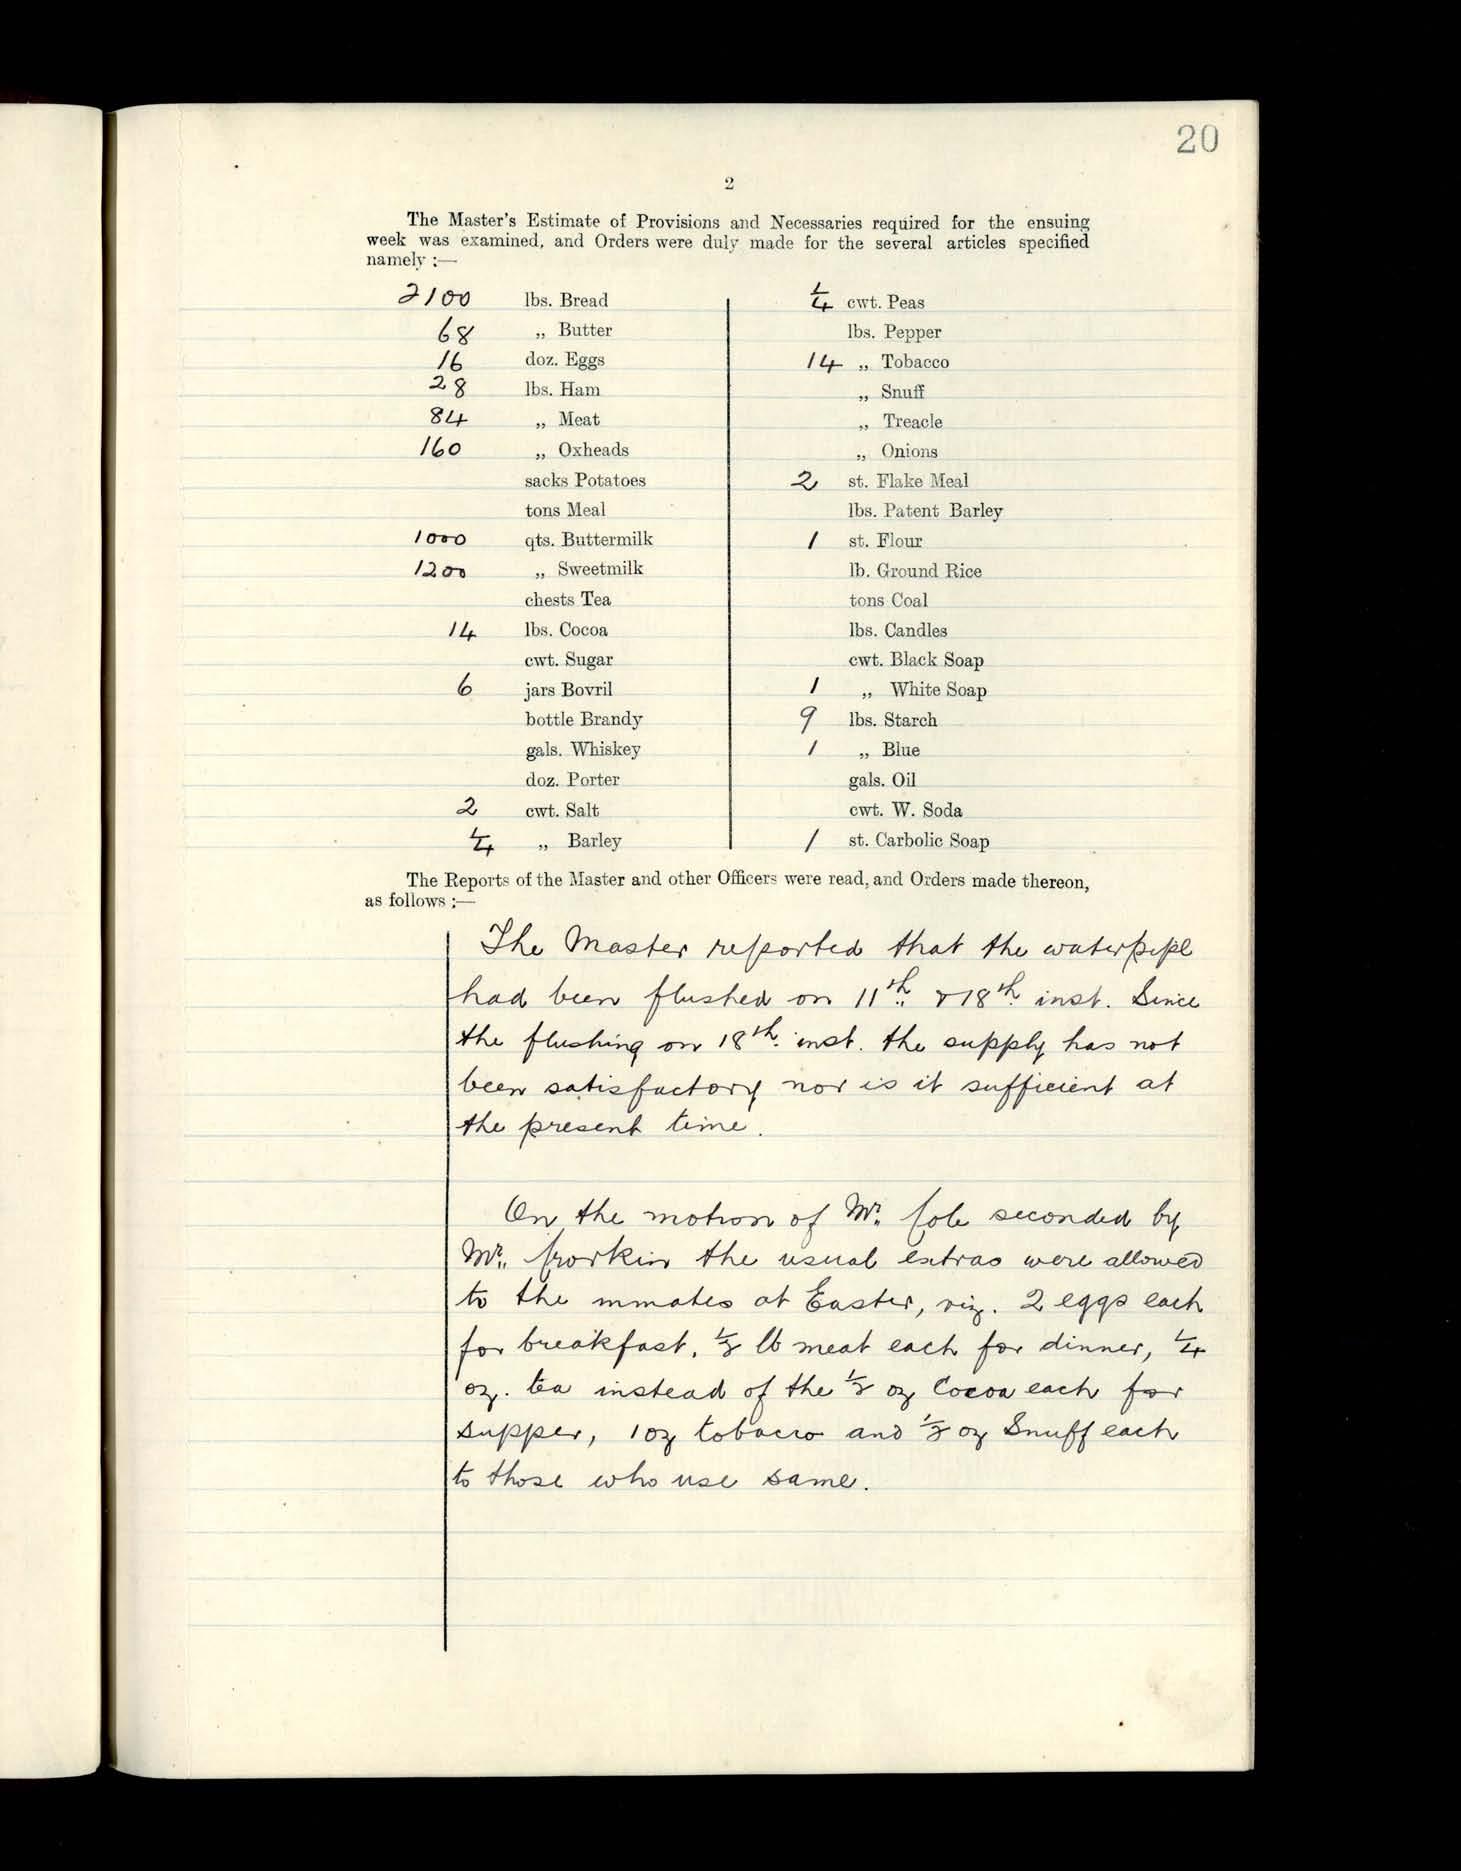 20
2
The Master's Estimate of Provisions and Necessaries required for the ensuing
week was examined, and Orders were duly made for the several articles specified
namely :—
2100 lbs. Bread
68 „ Butter
16 doz. Eggs
28 lbs. Ham
84 „ Meat
160 „ Oxheads
sacks Potatoes
tons Meal
1000 qts. Buttermilk
1200 „ Sweetmilk
chests Tea
14 lbs. Cocoa
cwt. Sugar
6 jars Bovril
bottle Brandy
gals. Whiskey
doz. Porter
2 cwt. Salt
¼ „ Barley
¼ cwt. Peas
lbs. Pepper
14 „ Tobacco
„ Snuff
„ Treacle
„ Onions
2 st. Flake Meal
lbs. Patent Barley
1 st. Flour
lb. Ground Rice
tons Coal
lbs. Candles
cwt. Black Soap
1 „ White Soap
9 lbs. Starch
1 „ Blue
gals. Oil
cwt. W. Soda
1 st. Carbolic Soap
The Reports of the Master and other Officers were read, and Orders made thereon,
as follows :—
The Master reported that the waterpipe
had been flushed on 11th. & 18th. inst. Since
the flushing on 18th. inst. the supply has not
been satisfactory nor is it sufficient at
the present time.
On the motion of Mr. Cole seconded by
Mr. the usual extras were allowed
to the inmates at Easter, viz. 2 eggs each
for breakfast, ½ lb meat each for dinner, ¼
oz. tea instead of the ½ oz Cocoa each for
supper, 1 oz tobacco and ½ oz Snuff each
to those who use same.